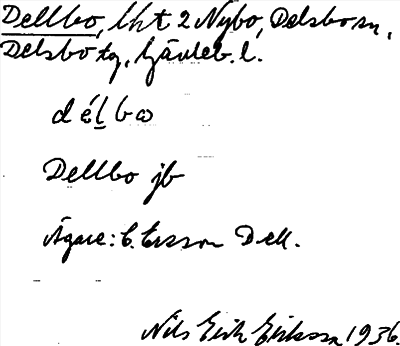 Dellbo, lht 2 Nybo, Delsbo sn,
Delsbo tg, Gävleb. l.
délbω
Dellbo jb
Ägare: E. Ersson Dell.
Nils Erik Eriksson 1936.